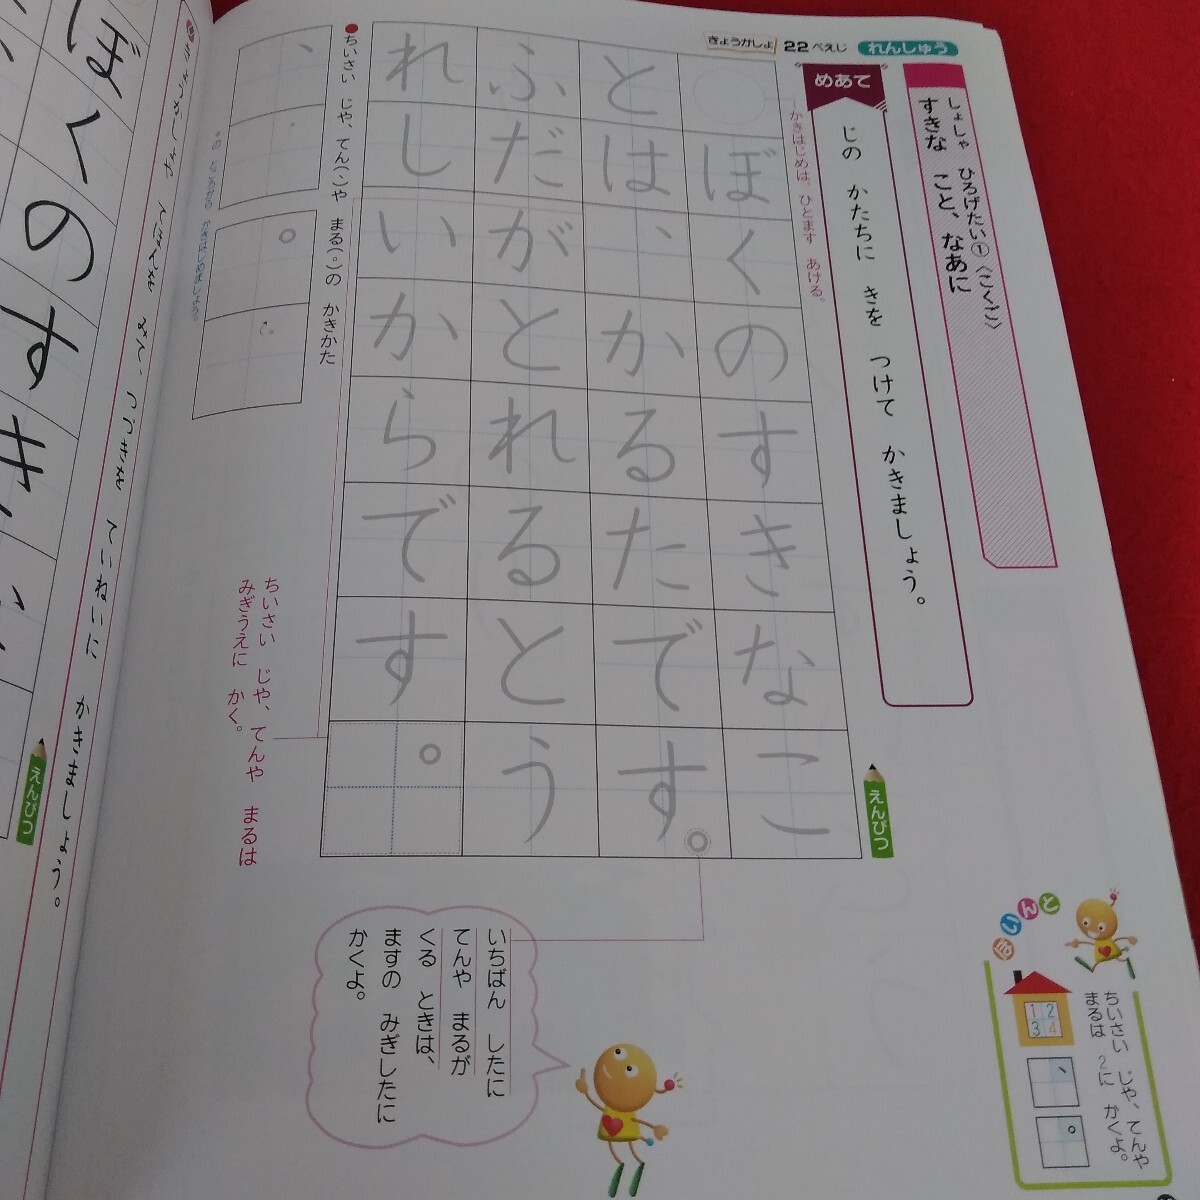 きょうかしょ 22ぺえじ れんしゅう
しょしゃ ひろげたい① 〈こくご〉
すきな こと、なあに
めあて
じの かたちに きを つけて かきましょう。
かきはじめは、ひとます あける。
ぼくのすきなこ
とは、かるたです。
ふだがとれるとう
れしいからです。
えんぴつ
●ちいさい じや、てん(、)や まる(。)の かきかた
、
。
ちいさい じや、てんや まるは
みぎうえに かく。
いちばん したに
てんや まるが
くる ときは、
ますの みぎしたに
かくよ。
1 2
3 4
ちいさい じや、てんや
まるは 2に かくよ。
、
。
ぼくのすき
ていねいに かきましょう。
えんぴつ